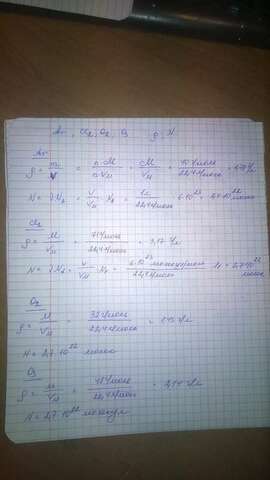 Ar, Cl₂, O₂, O₃ ρ, N
Ar
ρ = m/V = n·M/n·Vм = M/Vм = 40 г/моль / 22,4 л/моль =
N = νNₐ = V/Vм · Nₐ = 1л / 22,4 л/моль · 6·10²³ = 2,7·10²²
Cl₂
ρ = M/Vм = 71 г/моль / 22,4 л/моль = 3,17 г/л
N = νNₐ = V/Vм · Nₐ = 6·10²³ молекул/моль / 22,4 л/моль · 1л = 2,7·10²²
O₂
ρ = M/Vм = 32 г/моль / 22,4 л/моль = г/л
N = 2,7·10²²
O₃
ρ = M/Vм = 48 г/моль / 22,4 л/моль = 2,14 г/л
N = 2,7·10²² молекул